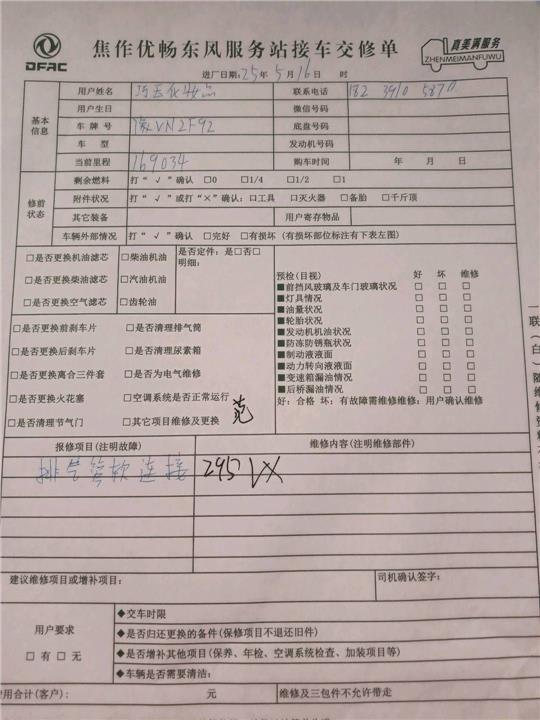 DFAC
焦作优畅东风服务站接车交修单
真美满服务
ZHENMEIMANFUWU
进厂日期: 25年 5月 16日 时
基本信息
用户姓名
化妆品
联系电话 182 3910 5870
用户生日
微信号码
车 牌 号 豫VN2F92
底盘号码
车 型
发动机号码
当前里程 169034
购车时间 年 月 日
修前状态
剩余燃料 打“√”确认 □0 □1/4 □1/2 □1
附件状况 打“√”或打“×”确认: □工具 □灭火器 □备胎 □千斤顶
其它装备
用户寄存物品
车辆外部情况 打“√”确认 □完好 □有损坏 (有损坏部位标注有下表左图)
□是否更换机油滤芯
□柴油机油
□是否更换柴油滤芯
□汽油机油
□是否更换空气滤芯
□齿轮油
是否定件: 是□否□
明细:
□是否更换前刹车片
□是否清理排气筒
□是否更换后刹车片
□是否清理尿素箱
□是否更换离合三件套
□是否为电气维修
□是否更换火花塞
□空调系统是否正常运行
□是否清理节气门
□其它项目维修及更换
预检(目视) 好 坏 维修
■前挡风玻璃及车门玻璃状况 □ □ □
■灯具情况 □ □ □
■油量状况 □ □ □
■轮胎状况 □ □ □
■发动机机油状况 □ □ □
■防冻防锈瓶状况 □ □ □
■制动液液面 □ □ □
■动力转向液液面 □ □ □
■变速箱漏油情况 □ □ □
■后桥漏油情况 □ □ □
好: 合格 坏: 有故障需维修维修: 用户确认维修
报修项目(注明故障)
维修内容(注明维修部件)
排气管软连接 295
建议维修项目或增补项目:
司机确认签字:
用户要求
□有 □无
◆交车时限
◆是否归还更换的备件(保修项目不退还旧件)
◆是否增补其他项目(保养、年检、空调系统检查、加装项目等)
◆车辆是否需要清洁:
用合计(客户): 元
维修及三包件不允许带走
一联(白)随维修